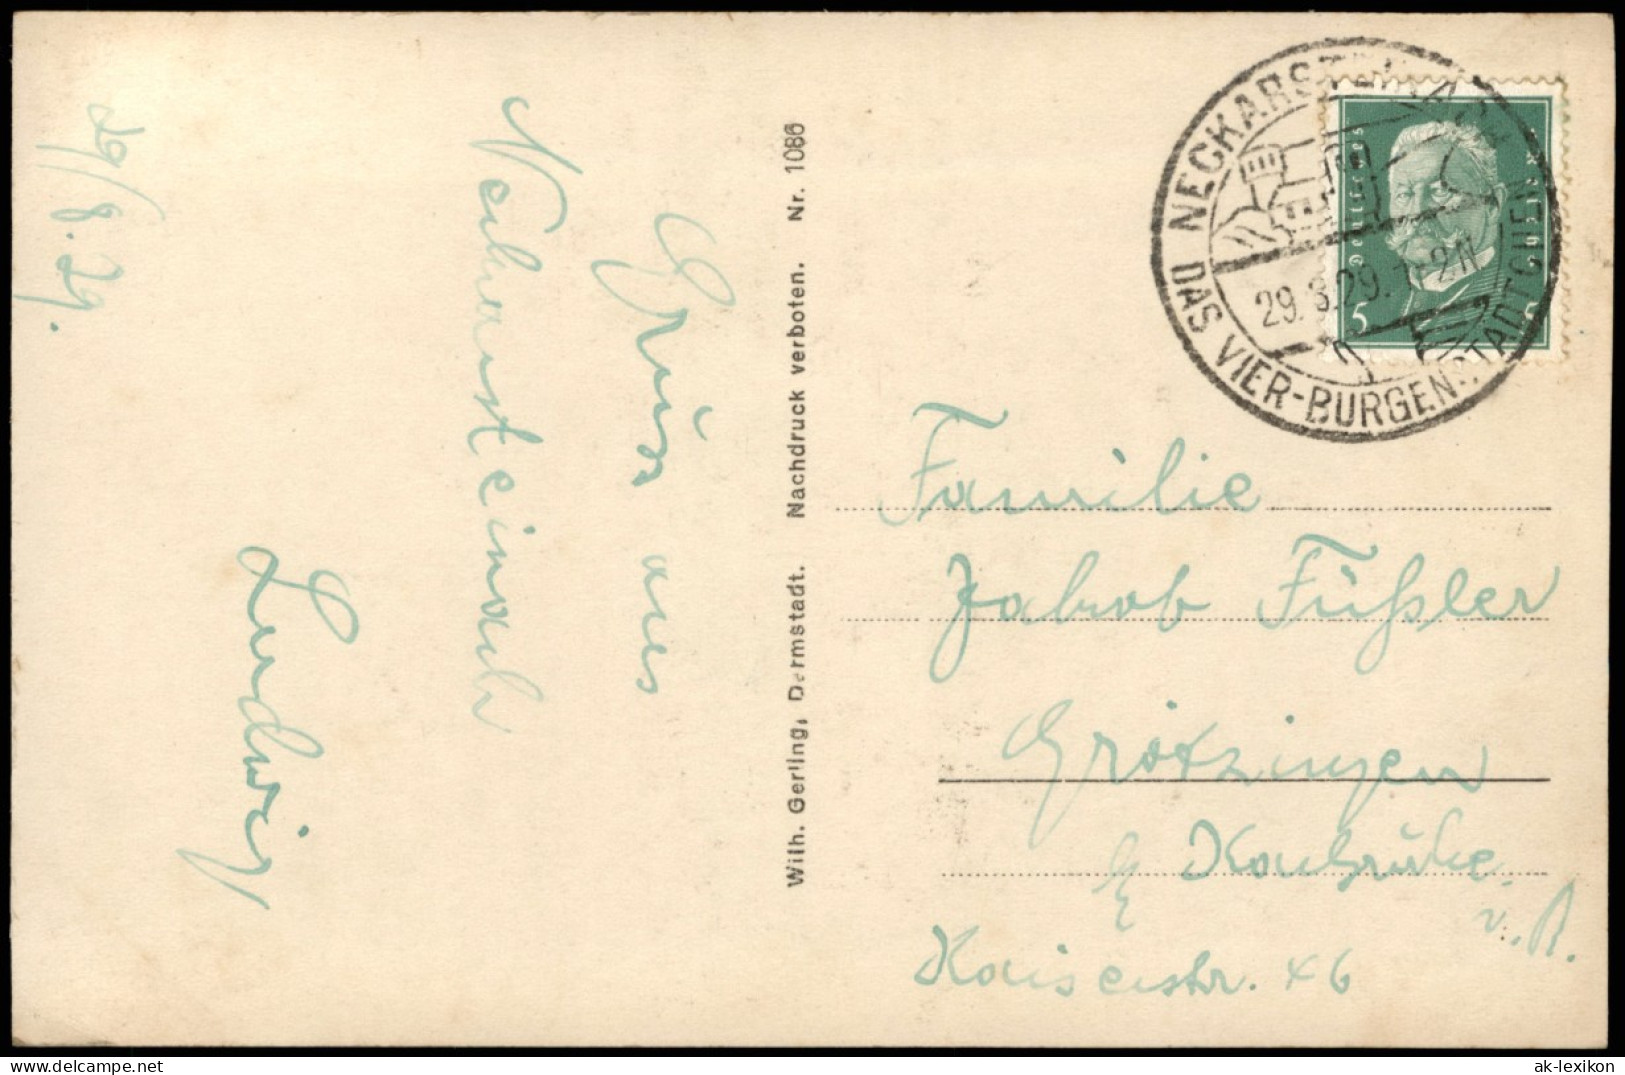 29/8.29.
Gruß aus
Neckarsteinach
Ludwig
Wilh. Gerling, Darmstadt. Nachdruck verboten. Nr. 1086
NECKARSTEINACH
29.8.29. 1-2N
DAS VIER-BURGENSTÄDTCHEN
Deutsches Reich
5 5
Familie
Jakob Füßler
Grötzingen
b/ Karlsruhe
i. B.
Kaiserstr. 46
ak-lexikon